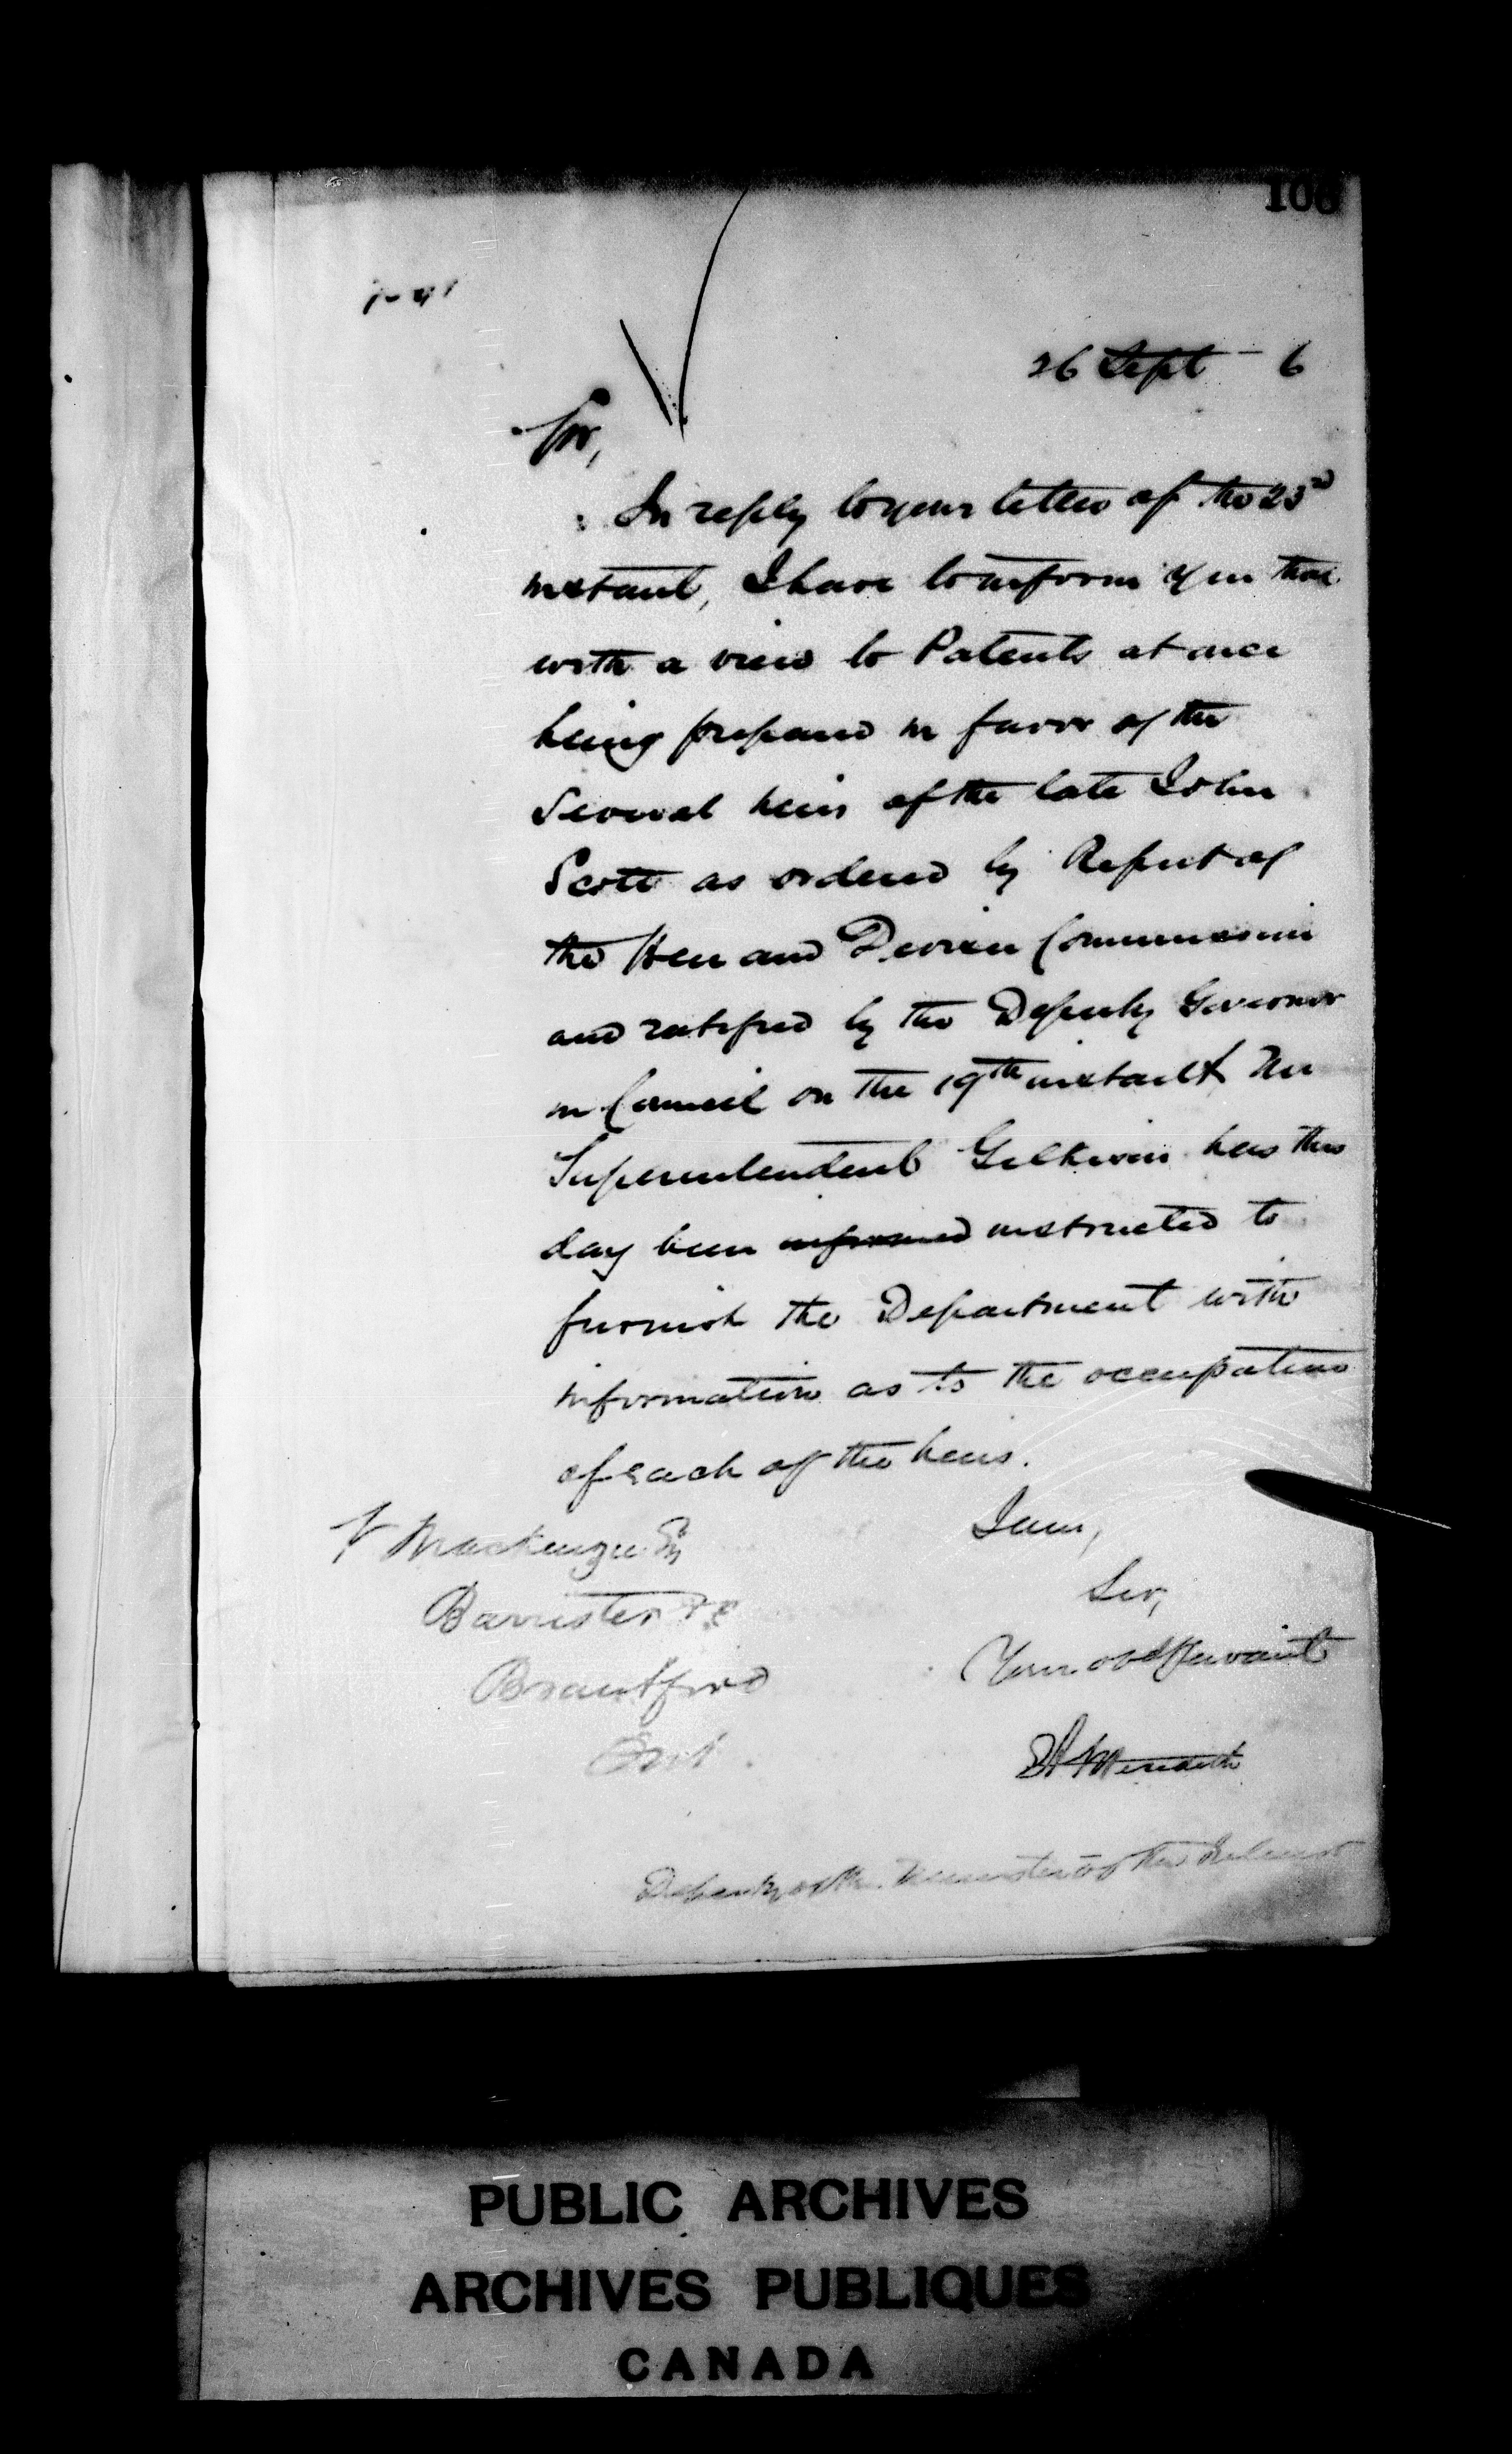 106
26 Sept - 6
Sir,
In reply to your letter of the 23rd
instant, I have to inform you that
with a view to Patents at once
being prepared in favor of the
several heirs of the late John
Scott as ordered by Report of
the Heir and Devisee Commission
and ratified by the Deputy Governor
in Council on the 19th instant,
Superintendent Gilkison has this
day been informed instructed to
furnish the Department with
information as to the occupation
of each of the heirs.
I am,
Sir,
Your obdt Servant
Mackenzie Esq
Barrister &c
Brantford
Ont.
E A Meredith
Deputy of the Minister of the Interior
PUBLIC ARCHIVES
ARCHIVES PUBLIQUES
CANADA